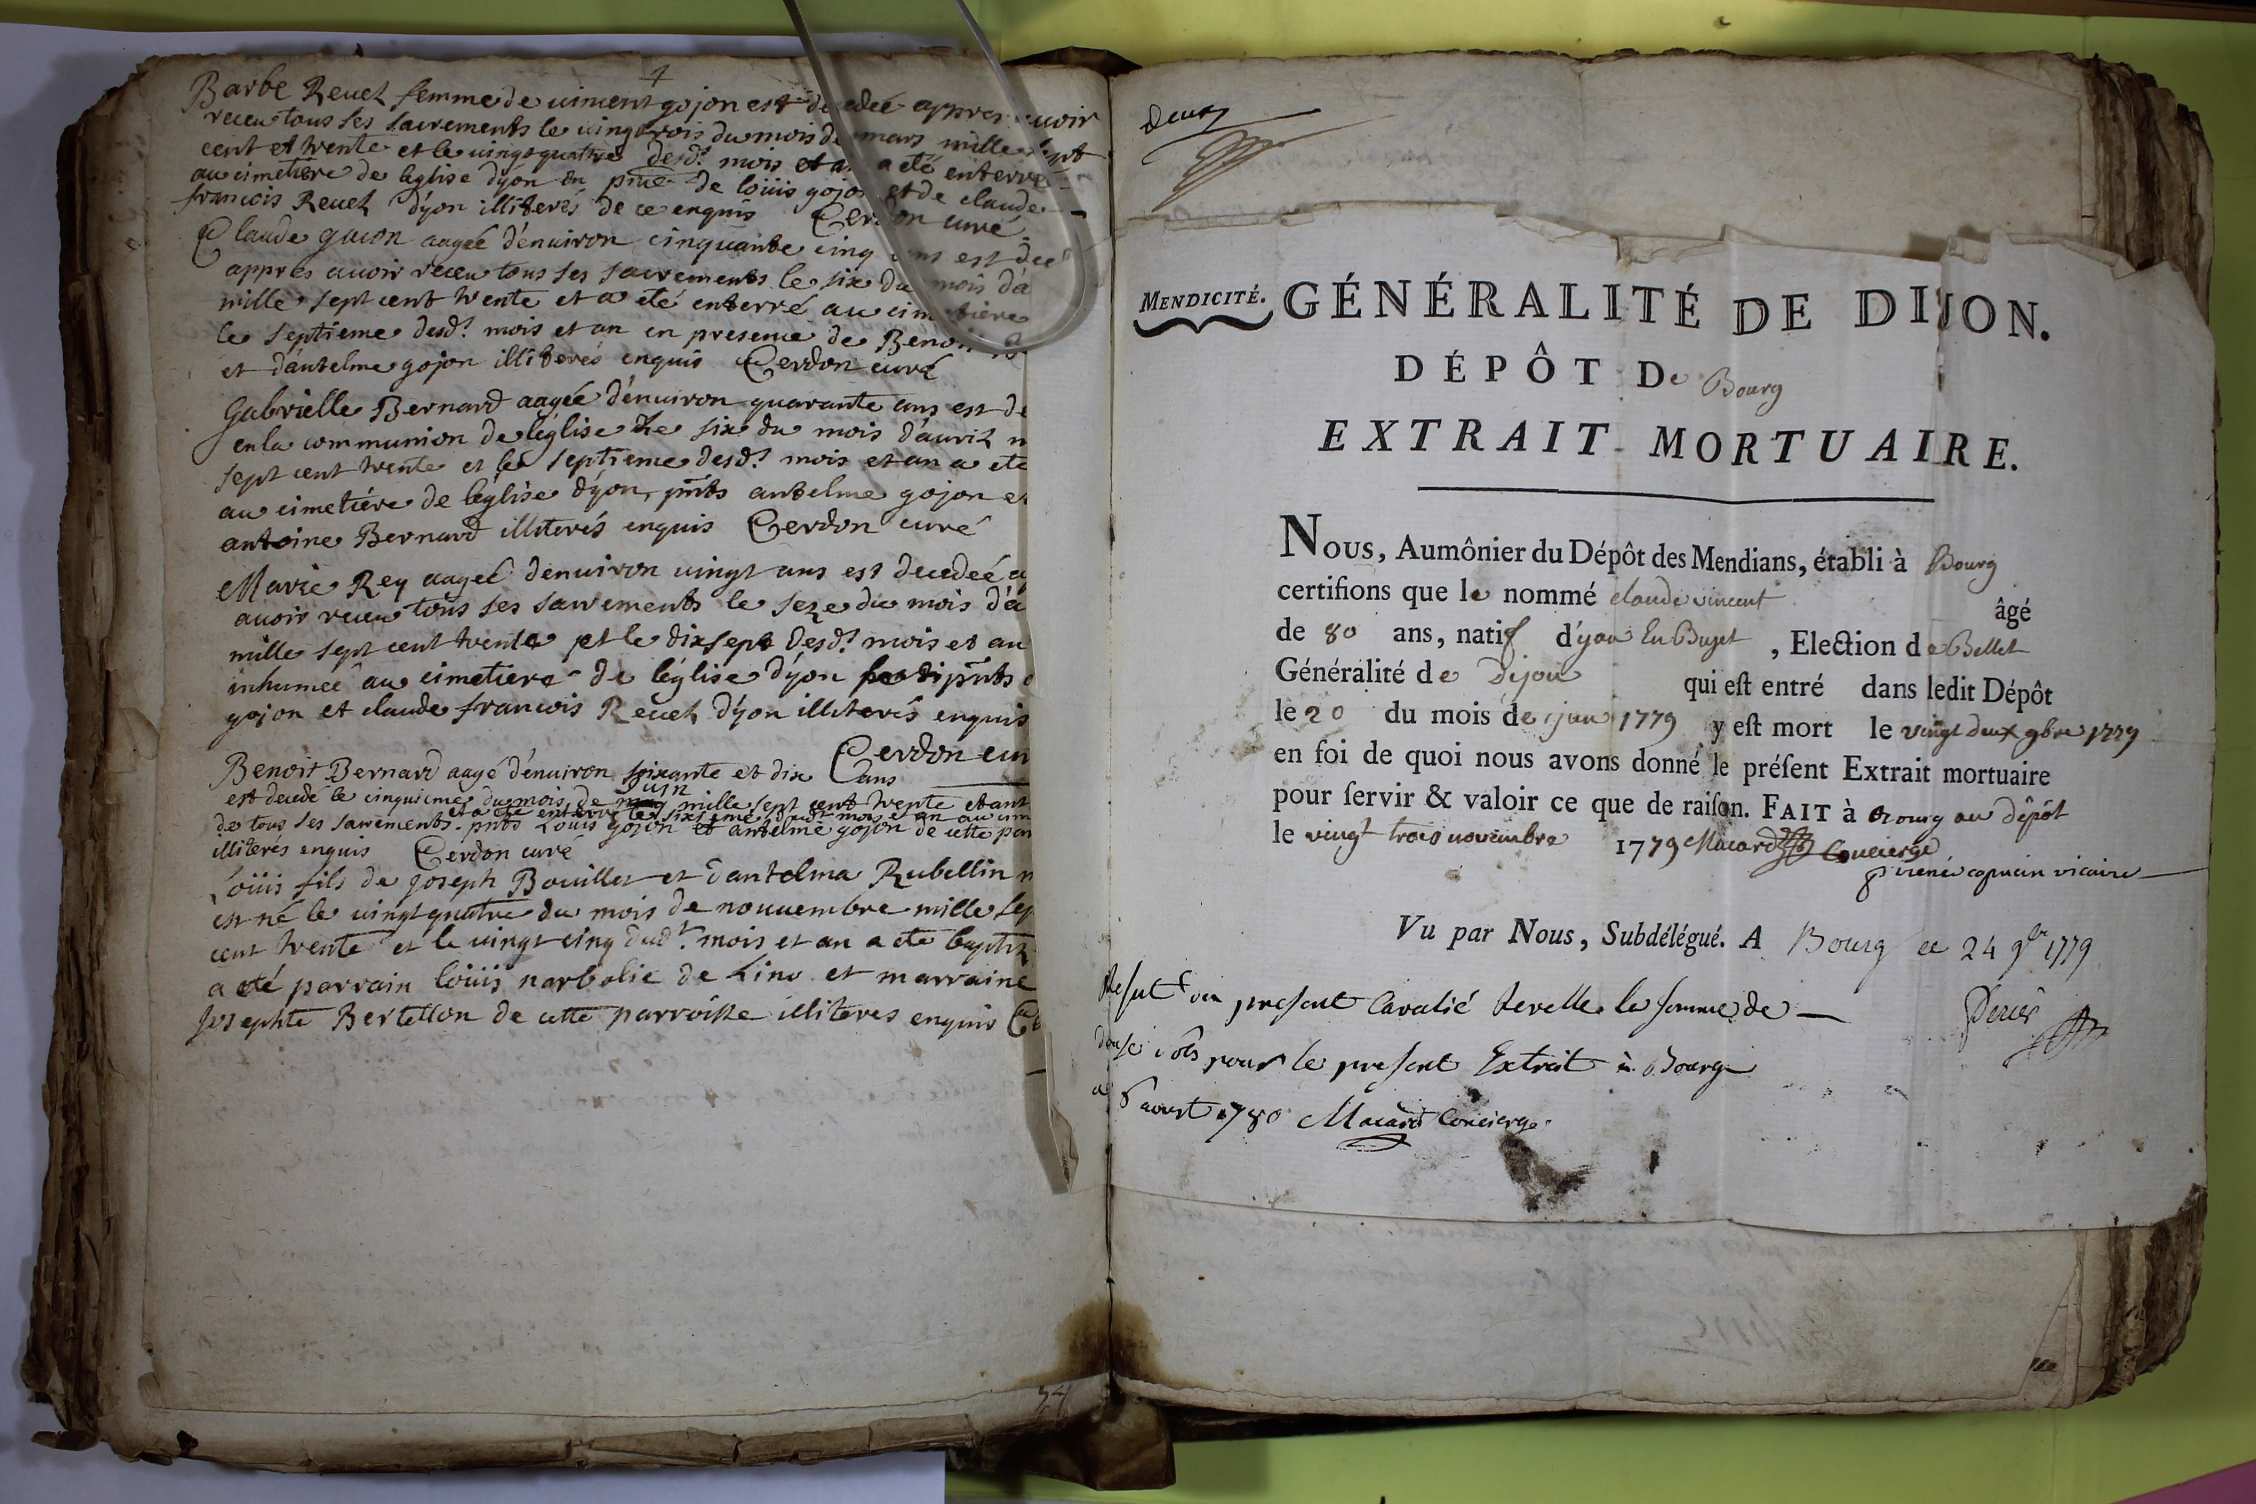 4
Barbe Reuel femme de uincent gojon est decedeé appres auoir
receu tous ses sacrements le uingtrois du mois de mars mille sept
cent et trente et le uingtquatre desd.t mois et an a eté enterré
au cimetiere de leglise dyon en pnce de loüis gojon et de claude
francois Reuel dyon illiterés de ce enquis Cerdon curé
Claude gucon aageé d'enuiron cinquante cinq ans est dec
appres auoir receu tous ses sacrements le six du mois d'a
mille sept cent trente et a eté enterré au cimetiere
le septieme desd.t mois et an en presence de Benoi
et d'antelme gojon illiterés enquis Cerdon curé
Gabrielle Bernard aageé d'enuiron quarante ans est de
en la communion de leglise le six du mois d'auril m
sept cent trente et le septieme desd.t mois et an a ete
au cimetiére de leglise dyon, pnts antelme gojon et
antoine Bernard illiterés enquis Cerdon curé
Marie Rey aageé denuiron uingt ans est decedeé a
auoir receu tous ses sacrements le seze du mois d'a
mille sept cent trente et le dixsept desd.t mois et an
inhumeé au cimetiere de léglise d'yon pnts
gojon et claude francois Reuel d'yon illiterés enquis
Cerdon cur
Benoit Bernard aagé d'enuiron soixante et dix ans
est decedé le cinquieme du mois de juin mille sept cent trente et ant
et a eté enterré le sixieme dudt mois et an au cim
de tous ses sacrements. pnts Loüis gojon et antelme gojon de cette par
illiterés enquis Cerdon curé
Loüis fils de joseph Bouillet et d'antelma Rubellin m
est né le uingtquatre du mois de nouuembre mille sep
cent trente et le uingt cinq dud.t mois et an a eté baptiz
a eté parrain loüis narbolie de Lino et marraine
josephte Bertellon de cette parroisse illiteres enquis C
34
MENDICITÉ. GÉNÉRALITÉ DE DIJON.
DÉPÔT De Bourg
EXTRAIT MORTUAIRE.
Nous, Aumônier du Dépôt des Mendians, établi à Bourg
certifions que le nommé claude vincent âgé
de 80 ans, natif d'yon En Buget, Election de Bellet
Généralité de Dijon qui est entré dans ledit Dépôt
le 20 du mois de juin 1779 y est mort le vingt deux 9bre 1779
en foi de quoi nous avons donné le présent Extrait mortuaire
pour servir & valoir ce que de raison. FAIT à Bourg au dépôt
le vingt trois novembre 1779 Macard Concierge
p irenée capucin vicaire
Vu par Nous, Subdélégué. A Bourg ce 24 9bre 1779
present Cavalié Revelle la somme de
douse sols pour le present Extrait à Bourg
6 aoust 1780 Macard Concierge